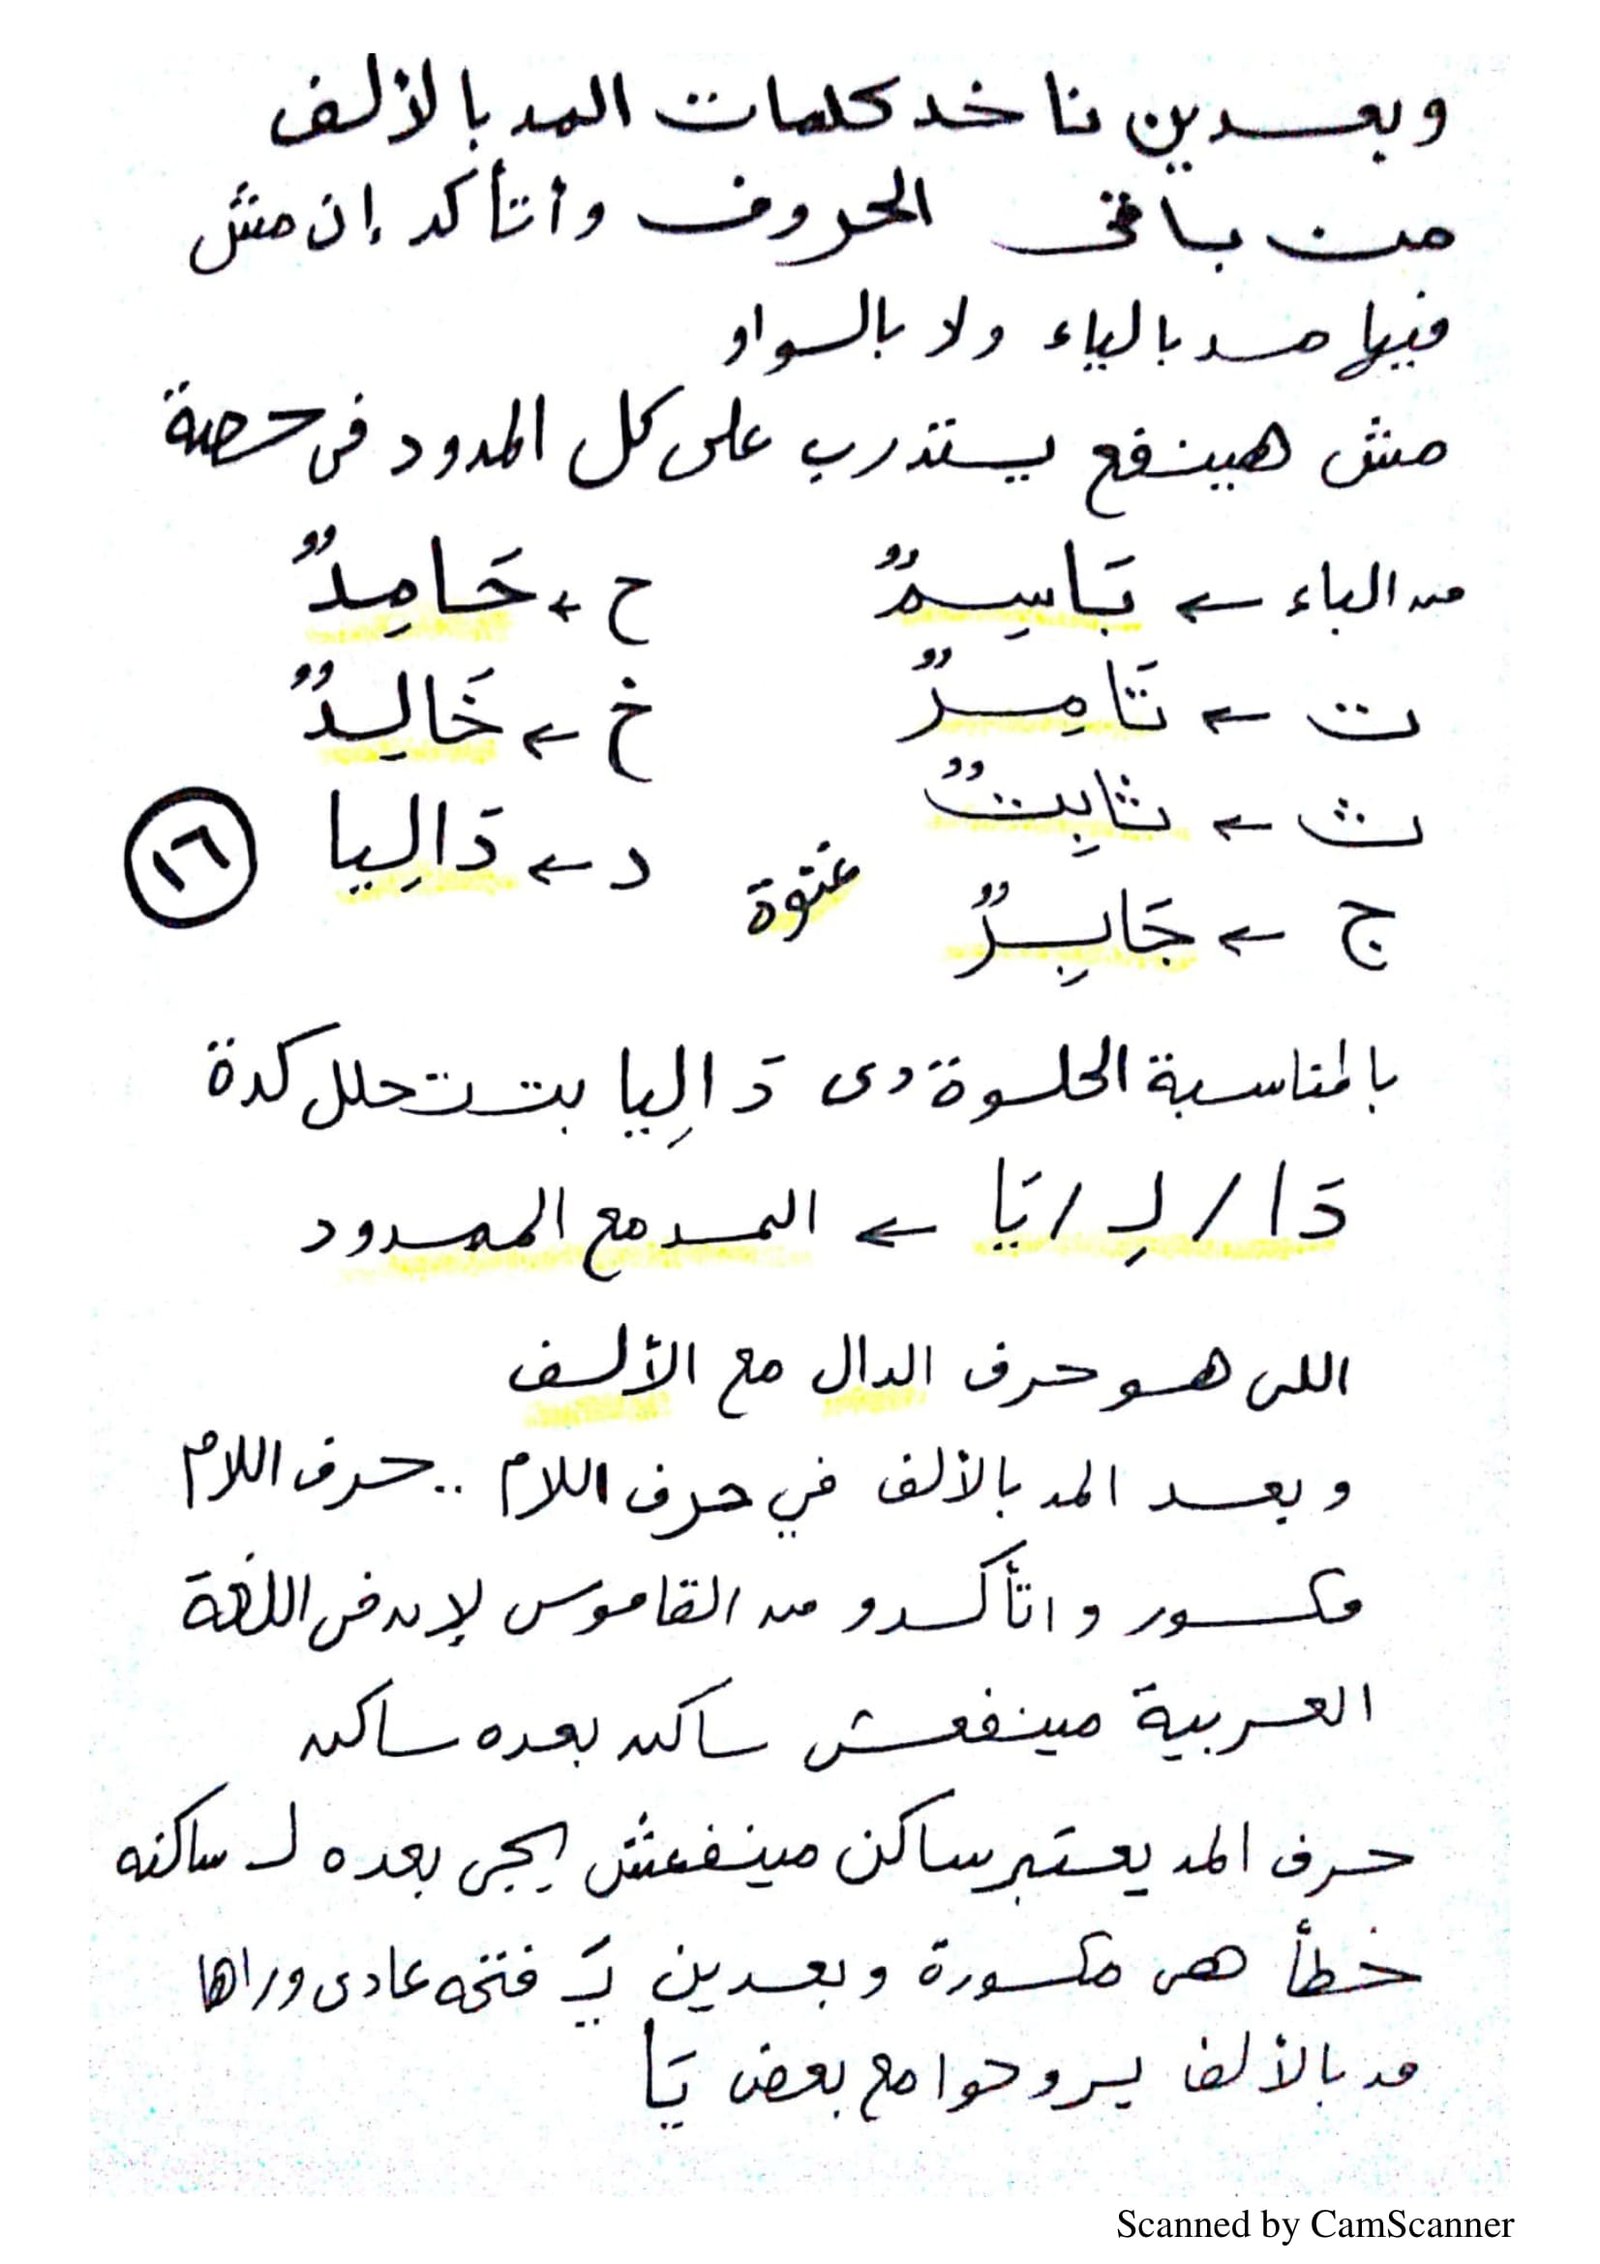 وبعدين ناخد كلمات المد بالألف
من باقى الحروف وأتأكد إن مش
فيها مد بالياء ولا بالواو
مش هينفع يتدرب على كل المدود فى حصة
من الباء ← بَاسِمٌ
ت ← تَامِرٌ
ث ← ثَابِتٌ
ج ← جَابِرٌ
ح ← حَامِدٌ
خ ← خَالِدٌ
د ← دَالِيا
غنوة
١٦
بالمناسبة الحلوة دى دَالِيا بتتحلل كدة
دَا / لِـ / يَا ← المد مع الممدود
اللى هو حرف الدال مع الألف
وبعد المد بالألف في حرف اللام .. حرف اللام
مكسور واتأكدو من القاموس لإن فى اللغة
العربية مينفعش ساكن بعده ساكن
حرف المد يعتبر ساكن مينفعش ييجى بعده لـ ساكنه
خطأ هى مكسورة وبعدين يَـ فتحه عادى وراها
مد بالألف يروحوا مع بعض يَا
Scanned by CamScanner